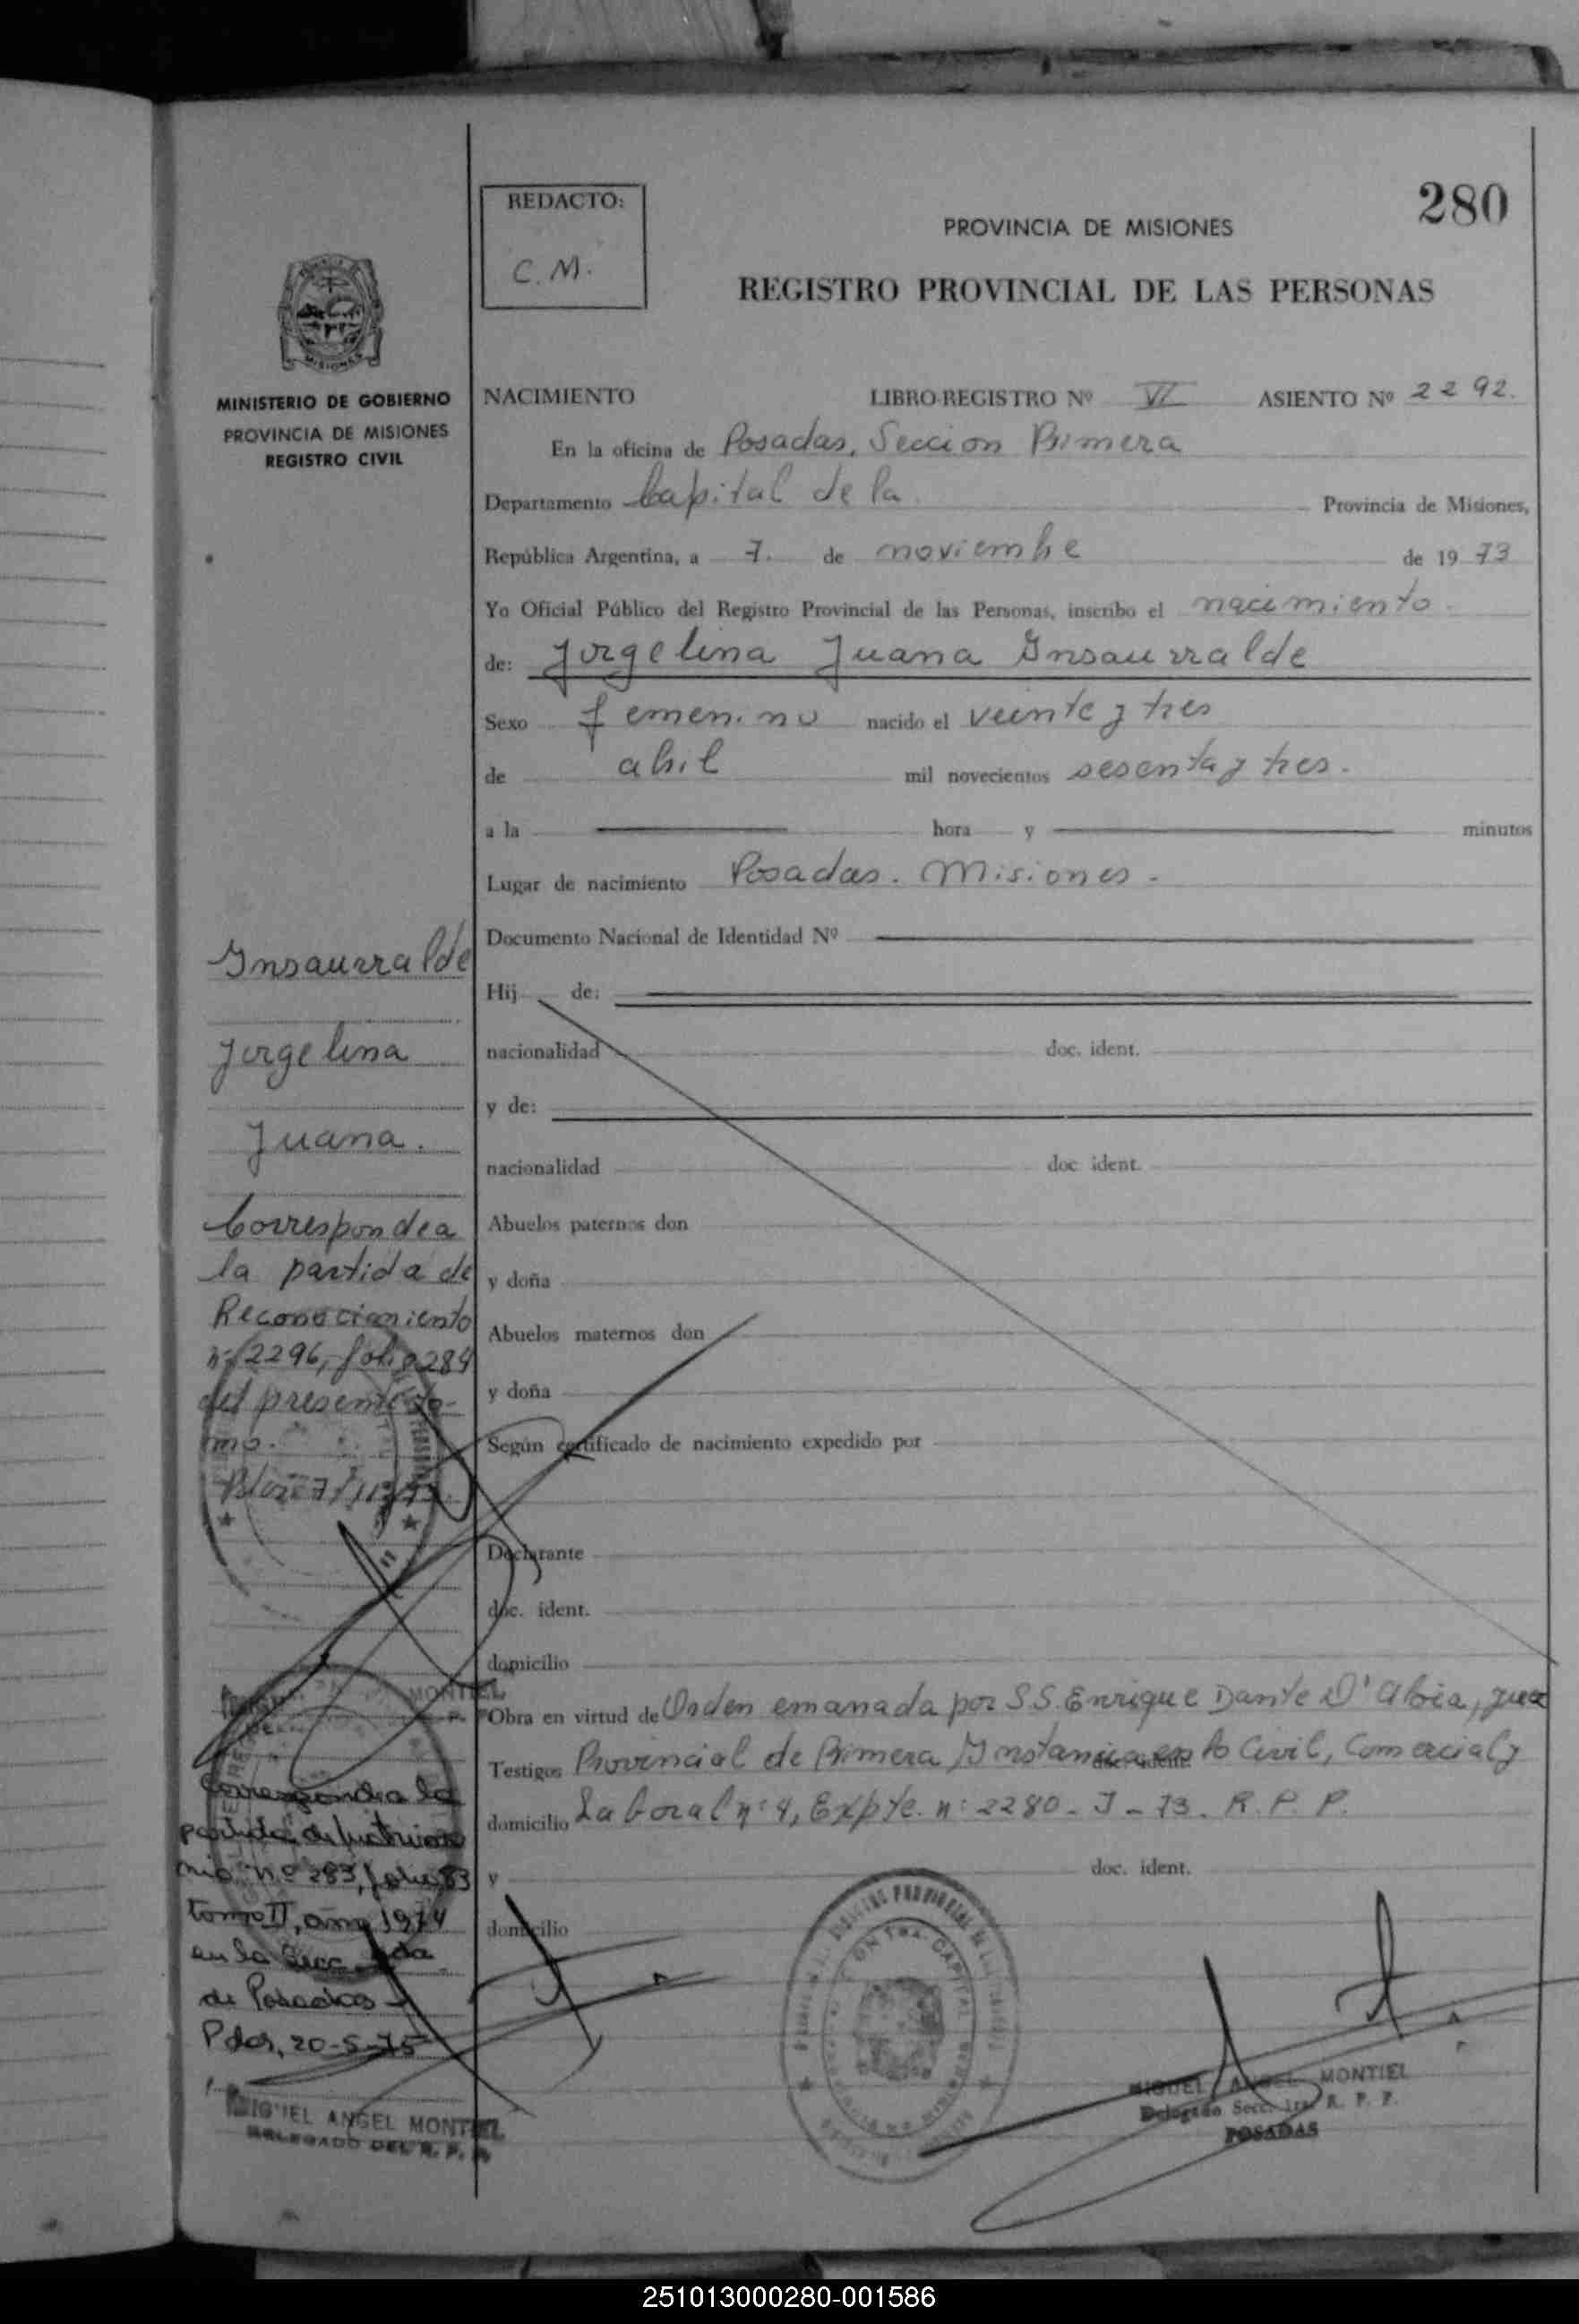 280
REDACTO:
C. M.
PROVINCIA DE MISIONES
REGISTRO PROVINCIAL DE LAS PERSONAS
MISIONES
MINISTERIO DE GOBIERNO
PROVINCIA DE MISIONES
REGISTRO CIVIL
NACIMIENTO LIBRO-REGISTRO Nº VI ASIENTO Nº 2292.
En la oficina de Posadas, Seccion Primera
Departamento Capital de la Provincia de Misiones,
República Argentina, a 7. de noviembre de 1973
Yo Oficial Público del Registro Provincial de las Personas, inscribo el nacimiento.
de: Jorgelina Juana Insaurralde
Sexo femenino nacido el veinte y tres
de abril mil novecientos sesenta y tres.
a la hora y minutos
Lugar de nacimiento Posadas. Misiones.
Documento Nacional de Identidad Nº
Hij de:
nacionalidad doc. ident.
y de:
nacionalidad doc. ident.
Abuelos paternos don
y doña
Abuelos maternos don
y doña
Según certificado de nacimiento expedido por
Declarante
doc. ident.
domicilio
Obra en virtud de Orden emanada por S.S. Enrique Dante D'
Testigos Provincial de Primera Instancia en lo Civil, Comercial y
doc. ident.
domicilio Laboral nº 4, Expte. nº 2280-J-73. R. P. P.
y doc. ident.
domicilio
Insaurralde
Jorgelina
Juana.
Corresponde a
la partida de
Reconocimiento
nº 2296, folio 284
del presente to-
mo.
7/11/73
MONTIEL
Corresponde a la
partida de matrimo
nio Nº 283, folio 83
tomo II, año 1974
en la Secc. 2da
de Posadas
Pdas, 20-5-75
MIGUEL ANGEL MONTIEL
DELEGADO DEL R. P. P.
MIGUEL ANGEL MONTIEL
Delegado Secc. 1ra. R. P. P.
POSADAS
251013000280-001586